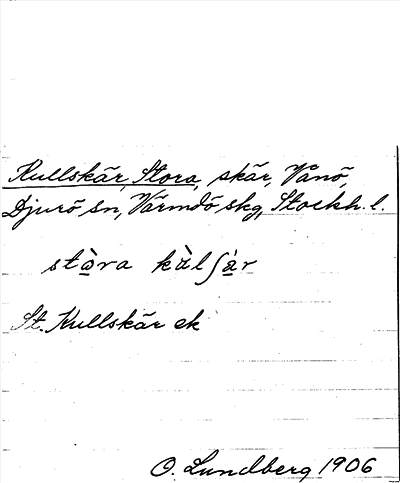 Kullskär, Stora, skär, Vånö,
Djurö sn, Värmdö skg, Stockh. l.
stòra kùlʃär
St. Kullskär ek
O. Lundberg 1906